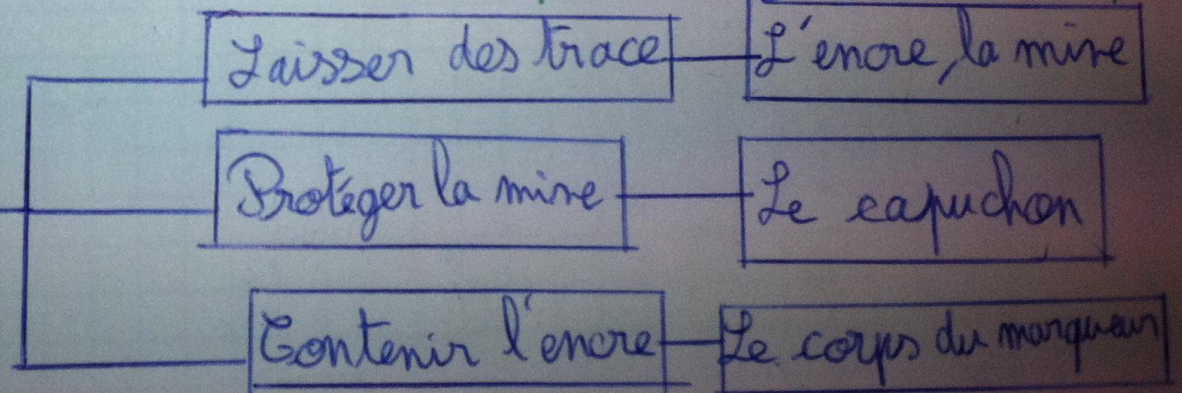 Laisser des trace L'encre, la mine
Protéger la mine Le capuchon
Contenir l'encre Le corps du marqueur